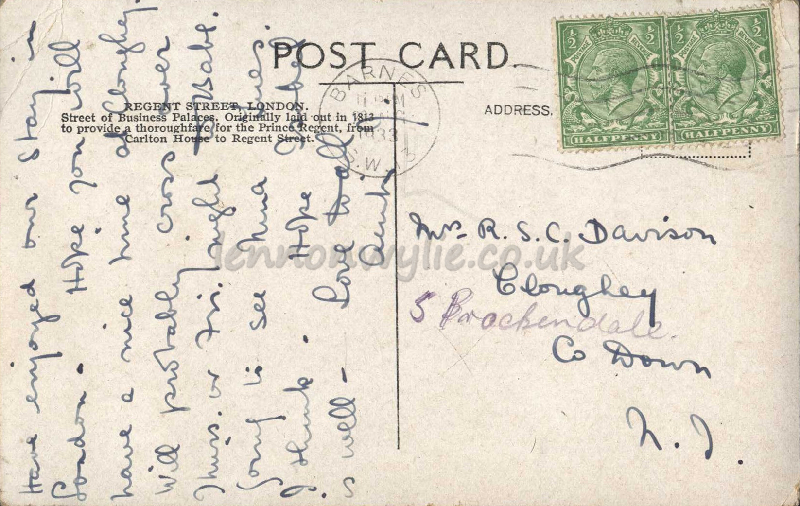 POST CARD.
REGENT STREET, LONDON.
Street of Business Palaces. Originally laid out in 1813
to provide a thoroughfare for the Prince Regent, from
Carlton House to Regent Street.
ADDRESS.
BARNES
1933
S.W.13
1/2 1/2
HALFPENNY HALFPENNY
Have enjoyed our stay in
London. Hope you will
have a nice time at Cloughey.
Will probably cross over
Thurs. or Fri. night
Going to see
I think. Hope
is well – Love to all
Mrs R. S. C. Davison
Cloughey
5 Brockendale.
Co Down
N.I.
lennonwylie.co.uk